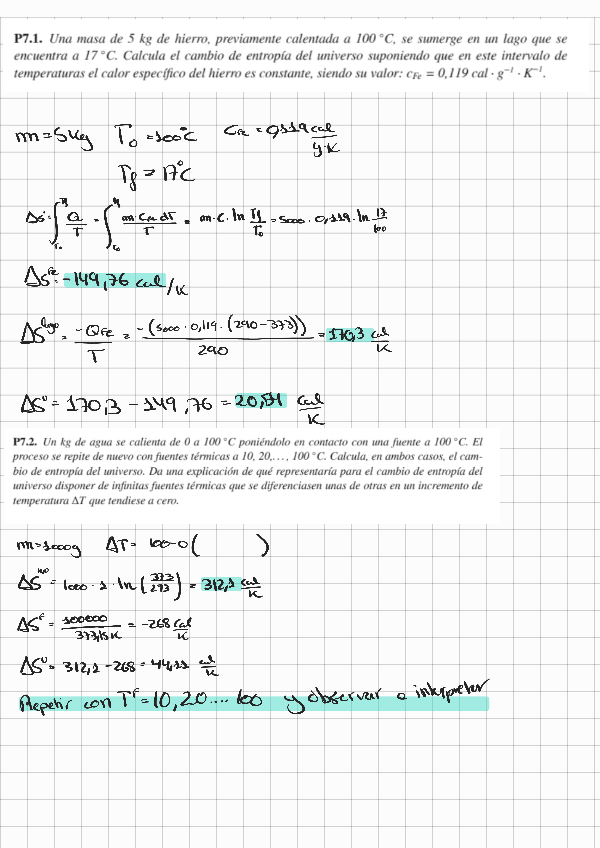 P7.1. Una masa de 5 kg de hierro, previamente calentada a 100 °C, se sumerge en un lago que se
encuentra a 17 °C. Calcula el cambio de entropía del universo suponiendo que en este intervalo de
temperaturas el calor específico del hierro es constante, siendo su valor: c_Fe = 0,119 cal · g⁻¹ · K⁻¹.
m = 5 Kg T₀ = 100°C C_Fe = 0,119 cal/g·K
T_f = 17°C
ΔS = ∫ Q/T = ∫ m·C_Fe dT/T = m·c·ln T_f/T₀ = 5000 · 0,119 · ln 17/100
ΔS^Fe = -149,76 cal/K
ΔS^lago = -Q_Fe/T = -(5000 · 0,119 · (290-373))/290 = 170,3 cal/K
ΔS^u = 170,3 - 149,76 = 20,54 cal/K
P7.2. Un kg de agua se calienta de 0 a 100 °C poniéndolo en contacto con una fuente a 100 °C. El
proceso se repite de nuevo con fuentes térmicas a 10, 20,..., 100 °C. Calcula, en ambos casos, el cam-
bio de entropía del universo. Da una explicación de qué representaría para el cambio de entropía del
universo disponer de infinitas fuentes térmicas que se diferenciasen unas de otras en un incremento de
temperatura ΔT que tendiese a cero.
m = 1000g ΔT = 100-0 ( )
ΔS = 1000 · 1 · ln (373/273) = 312,1 cal/K
ΔS^F = 100000/373,15K = -268 cal/K
ΔS^u = 312,1 - 268 = 44,11 cal/K
Repetir con T^F = 10, 20.... 100 y observar e interpretar